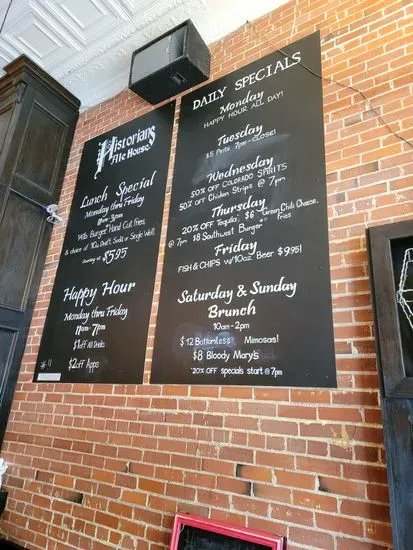 Historians
Ale House
Lunch Special
Monday thru Friday
11am-3pm
1/4lb Burger Hand Cut Fries
& choice of 10oz Draft, Soda or Single Well
starting at $5.95
Happy Hour
Monday thru Friday
11am-7pm
$1off All Drinks
$2off Apps
DAILY SPECIALS
Monday
HAPPY HOUR ALL DAY!
Tuesday
$5 Pints 7pm-CLOSE!
Wednesday
50% OFF COLORADO SPIRITS
50% OFF Chicken Strips @ 7pm
Thursday
20% OFF Tequila; $6 Green Chili Cheese Fries
@ 7pm $8 Southwest Burger
Friday
FISH & CHIPS w/10oz. Beer $9.95!
Saturday & Sunday
Brunch
10am-2pm
$12 Bottomless Mimosas!
$8 Bloody Mary's
*20% OFF specials start @ 7pm